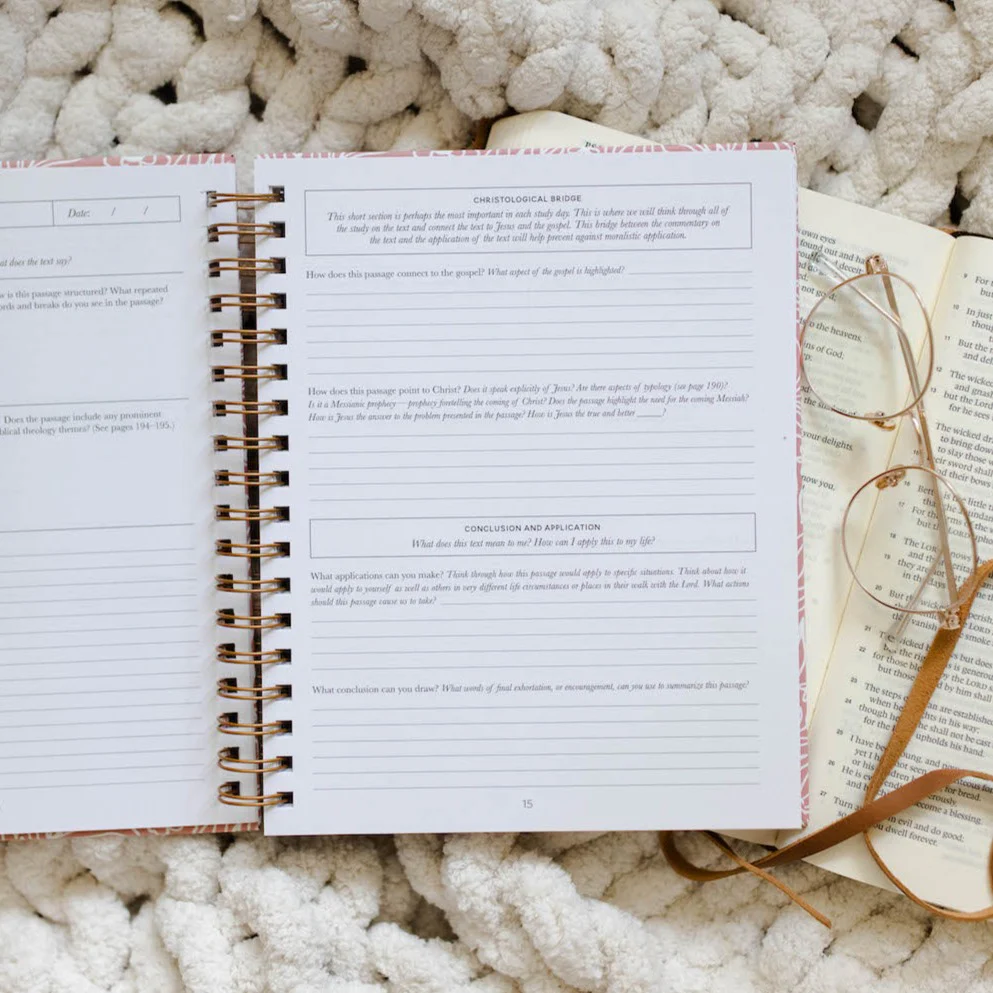 Date: / /
at does the text say?
is this passage structured? What repeated
rds and breaks do you see in the passage?
Does the passage include any prominent
blical theology themes? (See pages 194–195.)
CHRISTOLOGICAL BRIDGE
This short section is perhaps the most important in each study day. This is where we will think through all of
the study on the text and connect the text to Jesus and the gospel. This bridge between the commentary on
the text and the application of the text will help prevent against moralistic application.
How does this passage connect to the gospel? What aspect of the gospel is highlighted?
How does this passage point to Christ? Does it speak explicitly of Jesus? Are there aspects of typology (see page 190)?
Is it a Messianic prophecy—prophecy foretelling the coming of Christ? Does the passage highlight the need for the coming Messiah?
How is Jesus the answer to the problem presented in the passage? How is Jesus the true and better ______?
CONCLUSION AND APPLICATION
What does this text mean to me? How can I apply this to my life?
What applications can you make? Think through how this passage would apply to specific situations. Think about how it
would apply to yourself as well as others in very different life circumstances or places in their walk with the Lord. What actions
should this passage cause us to take?
What conclusion can you draw? What words of final exhortation, or encouragement, can you use to summarize this passage?
15
own eyes
found out and ha
deceit
not good;
to the heavens.
ins of God;
your delights
now you.
9 For t
but
10 In just
thou
11 But the
and del
12 The wicked
and gnash
13 but the Lord
for he sees
The wicked dra
to bring down
to slay those w
eir sword shall
and their bows
16 Bett is the little t
17 For the
but the LORD
18 The LORD knows
they are not
in the days
20 But the wicked perish
the LORD
vanish smoke
21 The wicked but does
but the is generou
22 for those ble by the LORD s
but those d by him shall
23 The steps an are established
when he ghts in his way;
24 though he shall not be cast
upholds his hand.
25 I have be oung, and no
yet I ha not seen
or his children for bread.
26 He is eve
and h become a blessing.
27 Turn a m evil and do good;
so ou dwell forever.